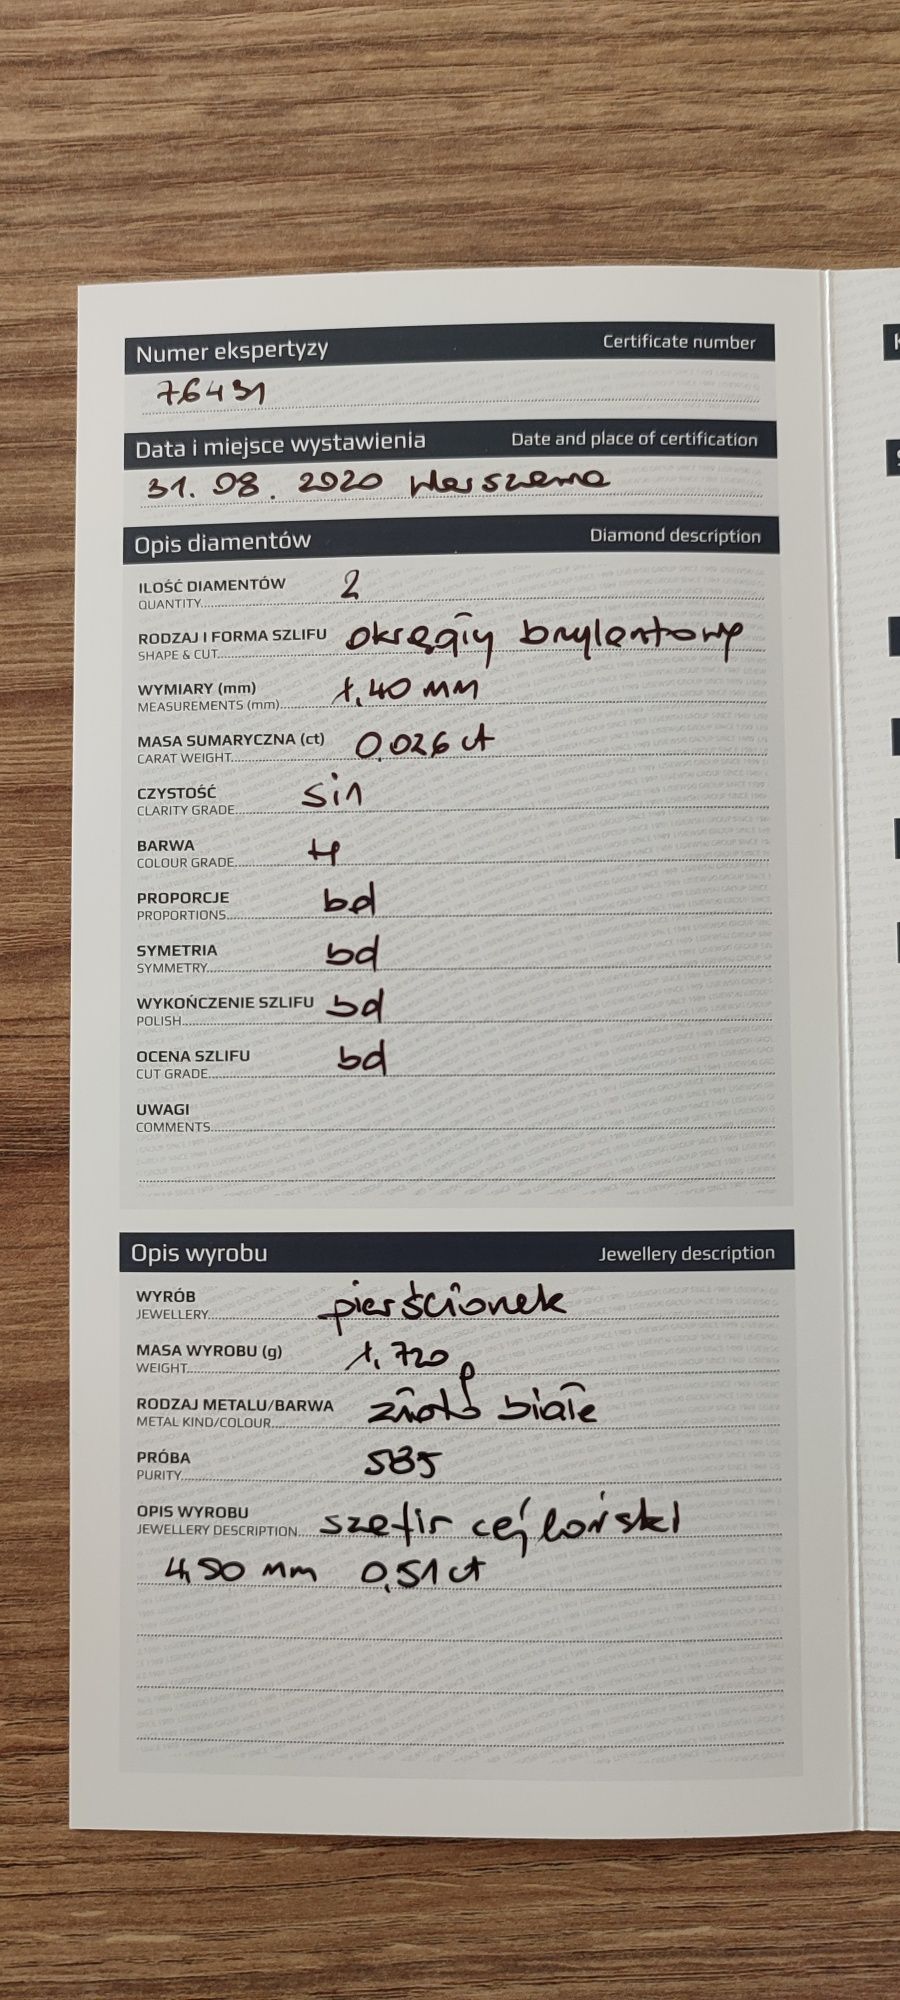 Numer ekspertyzy Certificate number
76431
Data i miejsce wystawienia Date and place of certification
31.08.2020 Warszawa
Opis diamentów Diamond description
ILOŚĆ DIAMENTÓW 2
QUANTITY
RODZAJ I FORMA SZLIFU okrągły brylantowy
SHAPE & CUT
WYMIARY (mm) 1,40 mm
MEASUREMENTS (mm)
MASA SUMARYCZNA (ct) 0,026 ct
CARAT WEIGHT
CZYSTOŚĆ si1
CLARITY GRADE
BARWA H
COLOUR GRADE
PROPORCJE bd
PROPORTIONS
SYMETRIA bd
SYMMETRY
WYKOŃCZENIE SZLIFU bd
POLISH
OCENA SZLIFU bd
CUT GRADE
UWAGI
COMMENTS
Opis wyrobu Jewellery description
WYRÓB pierścionek
JEWELLERY
MASA WYROBU (g) 1,720
WEIGHT
RODZAJ METALU/BARWA złoto białe
METAL KIND/COLOUR
PRÓBA 585
PURITY
OPIS WYROBU szafir cejloński
JEWELLERY DESCRIPTION
4,50 mm 0,51 ct